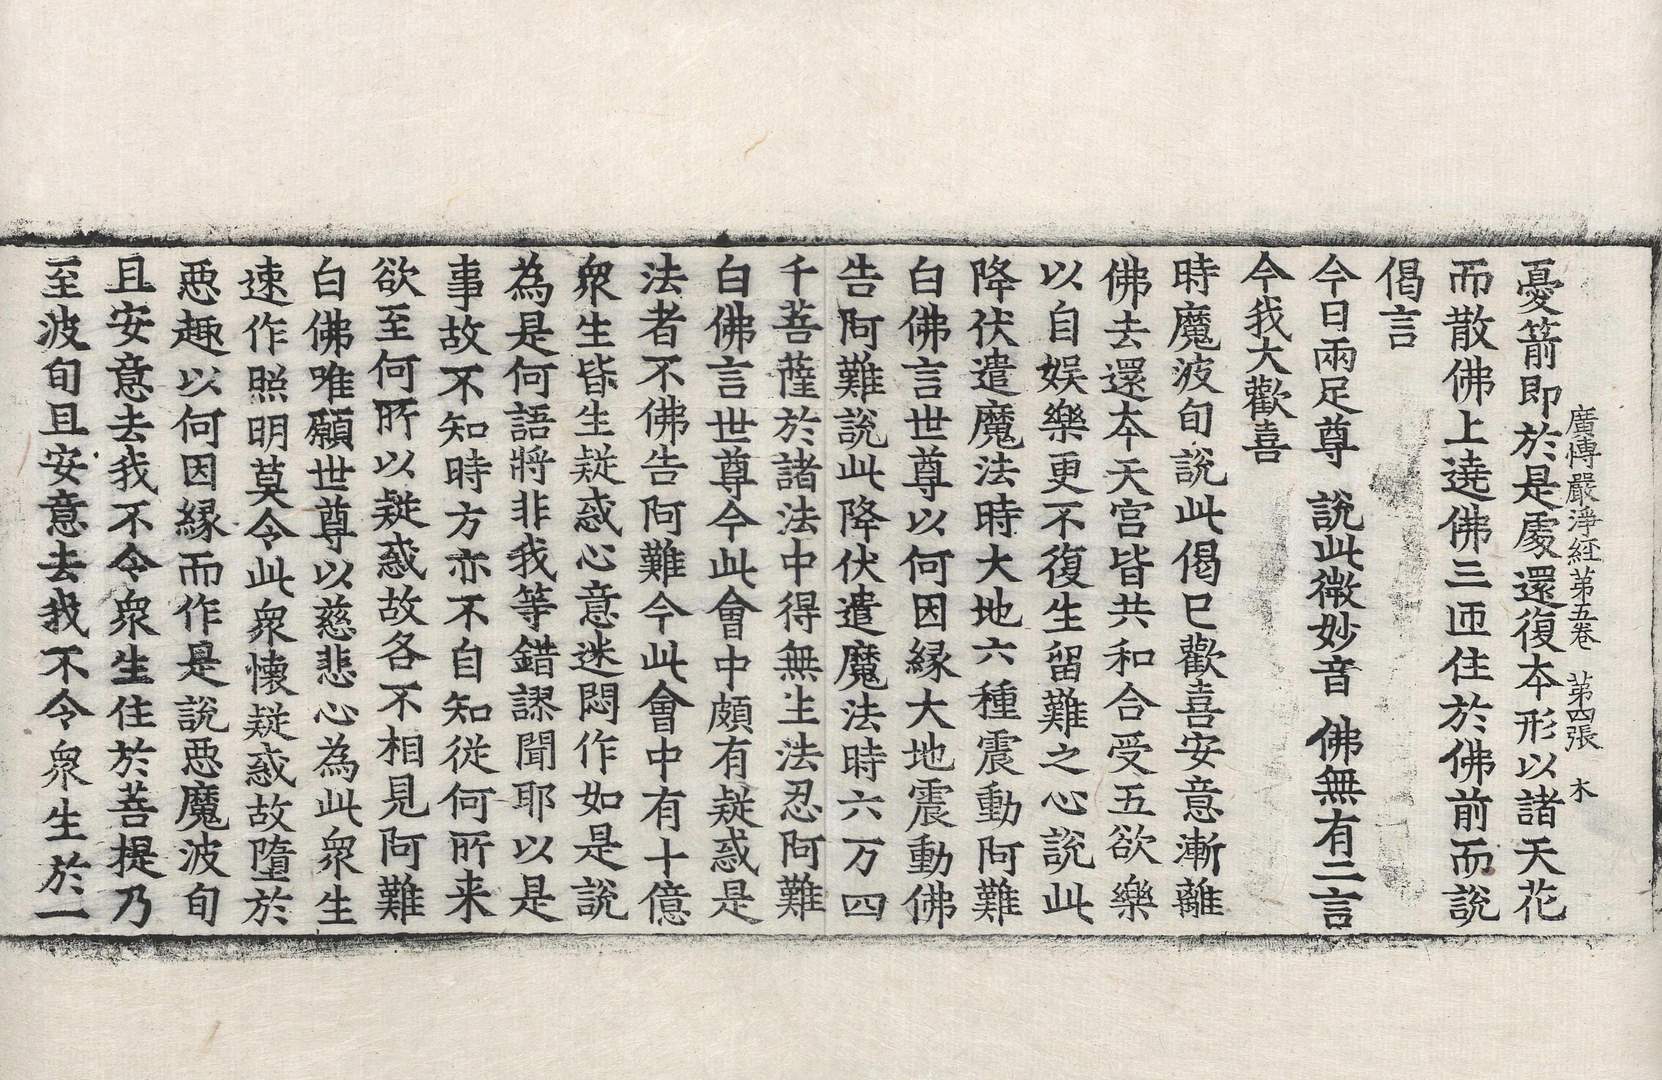 廣博嚴淨經第五卷　第四張　木
憂箭即於是處還復本形以諸天花
而散佛上遶佛三匝住於佛前而說
偈言
今日兩足尊　說此微妙音　佛無有二言
今我大歡喜
時魔波旬說此偈已歡喜安意漸離
佛去還本天宮皆共和合受五欲樂
以自娛樂更不復生留難之心說此
降伏遣魔法時大地六種震動阿難
白佛言世尊以何因緣大地震動佛
告阿難說此降伏遣魔法時六万四
千菩薩於諸法中得無生法忍阿難
白佛言世尊今此會中頗有疑惑是
法者不佛告阿難今此會中有十億
衆生皆生疑惑心意迷悶作如是說
為是何語將非我等錯謬聞耶以是
事故不知時方亦不自知從何所来
欲至何所以疑惑故各不相見阿難
白佛唯願世尊以慈悲心為此衆生
速作照明莫令此衆懷疑惑故墮於
惡趣以何因緣而作是說惡魔波旬
且安意去我不令衆生住於菩提乃
至波旬且安意去我不令衆生於一